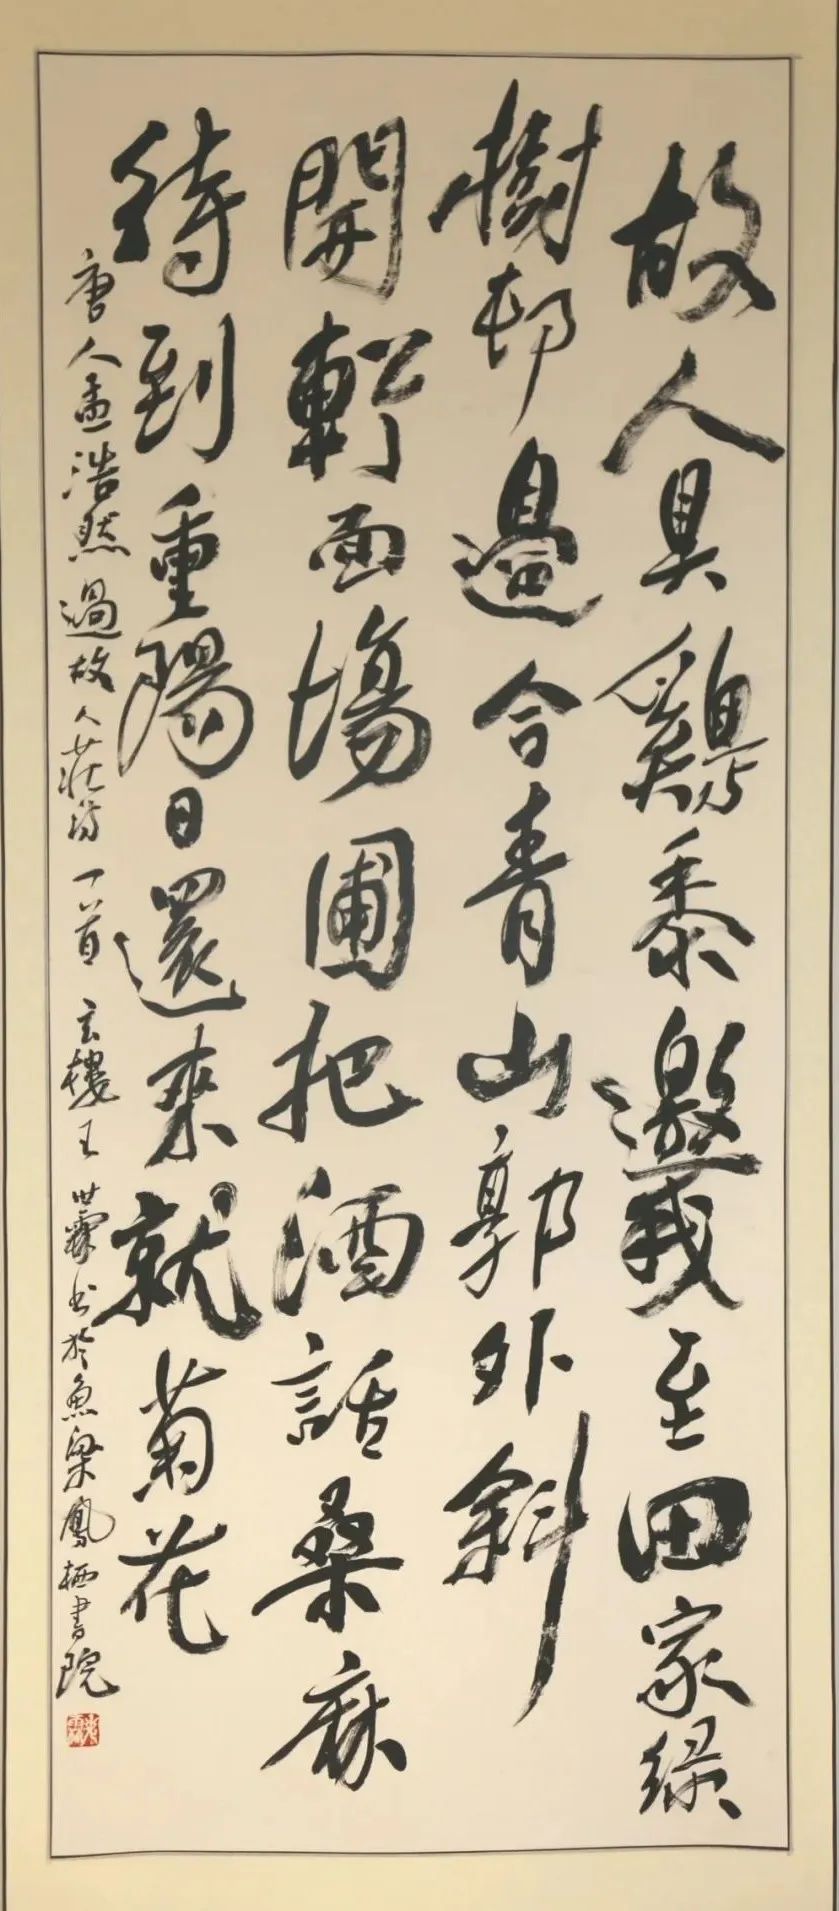 故人具鷄黍邀我至田家绿
樹邨邊合青山郭外斜
開軒面場圃把酒話桑麻
待到重陽日還來就菊花
唐人孟浩然過故人莊詩一首 玄樓王世霖书於魚梁鳳栖書院